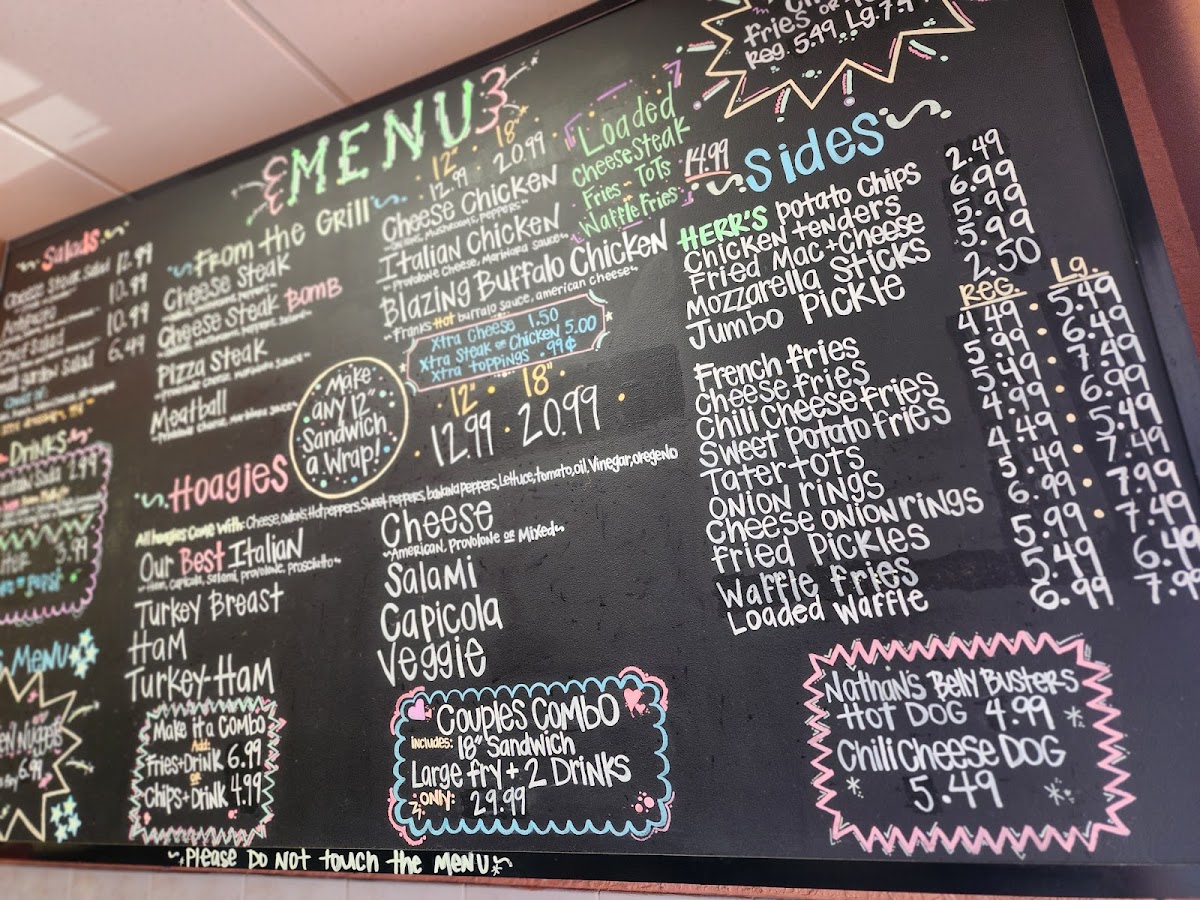 Fries OR
Reg. 5.49 Lg. 7.
MENU
Salads
Cheese Steak Salad 12.99
Antipasto 10.99
Chef Salad 10.99
Garden Salad 6.49
Drinks
2.99
3.99
Menu
6.99
From the Grill
12" 18"
12.99 20.99
Cheese Steak
Cheese Steak Bomb
Pizza Steak
Meatball
Cheese Chicken
Italian Chicken
~Provolone Cheese, Marinara Sauce~
Blazing Buffalo Chicken
~Franks Hot buffalo sauce, american cheese~
Xtra Cheese 1.50
Xtra Steak or Chicken 5.00
Xtra toppings .99¢
Make
any 12"
Sandwich
a Wrap!
Loaded
CheeseSteak
Fries - Tots
Waffle Fries
14.99
Hoagies
12" 18"
12.99 20.99
All hoagies Come With: Cheese, onions, Hot peppers, Sweet peppers, banana peppers, Lettuce, tomato, oil, Vinegar, oregeno
Our Best Italian
~Ham, Capicola, Salami, provolone, Proscietto~
Turkey Breast
Ham
Turkey-Ham
Cheese
~American, Provolone or Mixed~
Salami
Capicola
Veggie
Make it a Combo
Add:
Fries+Drink 6.99
or
Chips+Drink 4.99
Couples Combo
Includes: 18" Sandwich
Large fry + 2 Drinks
Only: 29.99
Sides
HERR'S Potato Chips 2.49
Chicken tenders 6.99
Fried Mac+Cheese 5.99
Mozzarella Sticks 5.99
Jumbo Pickle 2.50
REG. Lg.
French fries 4.49 5.49
Cheese fries 5.99 6.49
Chili Cheese fries 5.49 7.49
Sweet Potato fries 4.99 6.99
Tater tots 4.49 5.49
Onion rings 5.49 7.49
Cheese onion rings 6.99 7.99
Fried Pickles 5.99 7.49
Waffle fries 5.49 6.49
Loaded Waffle 6.99 7.99
Nathan's Belly Busters
Hot Dog 4.99
Chili Cheese Dog
5.49
Please Do Not touch the Menu